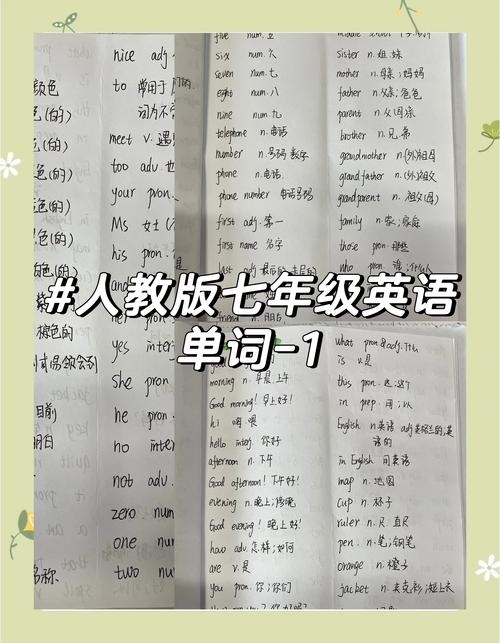 颜色
色(的)
色(的)
色(的)
色(的)
色(的)
棕色的
目前
明白
名称
nice adj.
to 常用于
meet v. 遇
too adv. 也
your pron.
Ms 女士
his pron.
yes inter
she pron
he pron
no inter
not adv.
zero num
one num
two num
five num. 五
six num. 六
seven num. 七
eight num. 八
nine num. 九
telephone n. 电话
number n. 号码;数字
phone n. 电话
phone number 电话号码
first adj. 第一
first name 名字
middle school
sister n. 姐;妹
mother n. 母亲;妈妈
father n. 父亲;爸爸
parent n. 父(母)亲
brother n. 兄;弟
grandmother n. (外)祖母
grandfather n. (外)祖父
grandparent n. 祖父(母)
family n. 家;家庭
those pron. 那些
#人教版七年级英语
单词-1
morning n. 早晨;上午
Good morning! 早上好!
hi 嗨 喂
hello interj. 你好
afternoon n. 下午
Good afternoon! 下午好!
evening n. 晚上;傍晚
Good evening! 晚上好!
how adv. 怎样;如何
are v. 是
you pron. 你;你们
what pron & adj. 什么
is v. 是
this pron. 这;这个
in prep. 用;以
English n. 英语 adj. 英格兰的;英
语的
in English 用英语
map n. 地图
cup n. 杯子
ruler n. 尺;直尺
pen n. 笔;钢笔
orange n. 橙子
jacket n. 夹克衫;短上衣